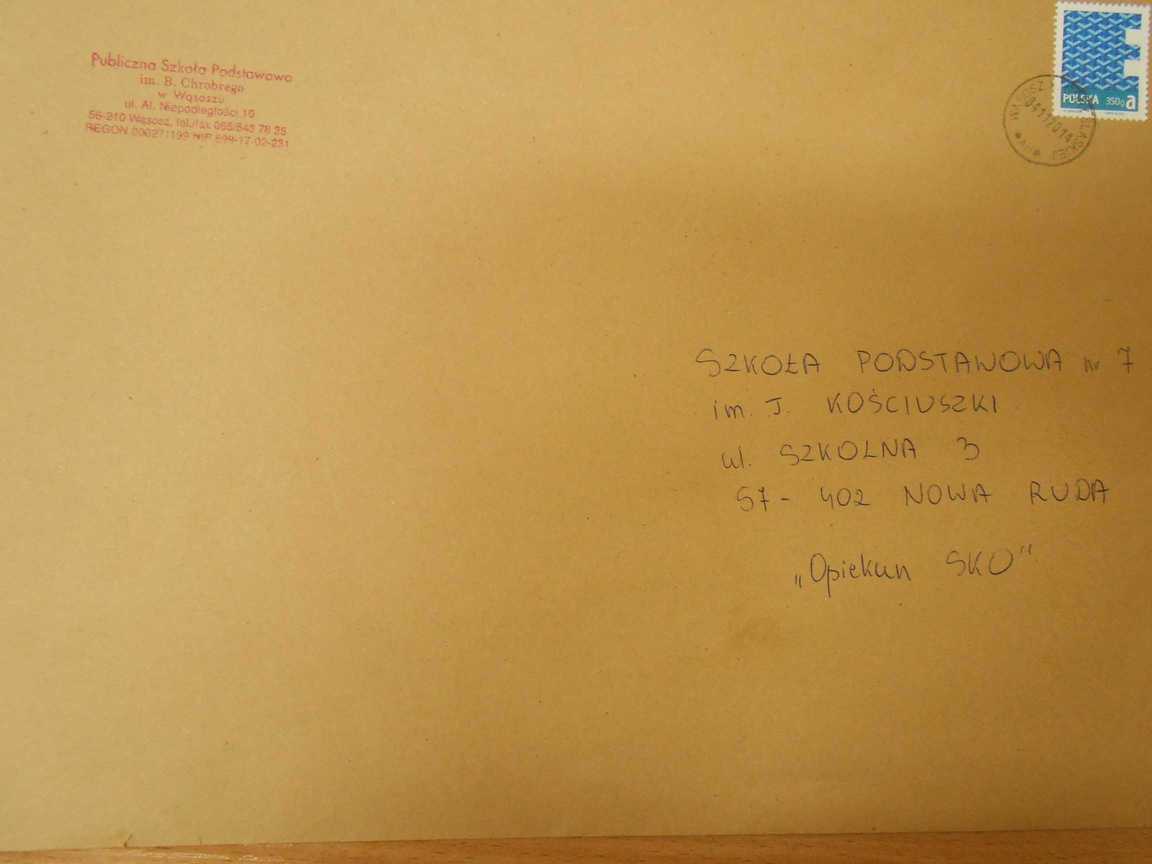 Publiczna Szkoła Podstawowa
im. B. Chrobrego
w Wąsoszu
ul. Al. Niepodległości 16
56-210 Wąsosz, tel./fax 065/543 78 35
REGON 000271199 NIP 699-17-02-231
POLSKA 350g a
SZKOŁA PODSTAWOWA nr 7
im. J. KOŚCIUSZKI
ul. SZKOLNA 3
57-402 NOWA RUDA
„Opiekun SKO"